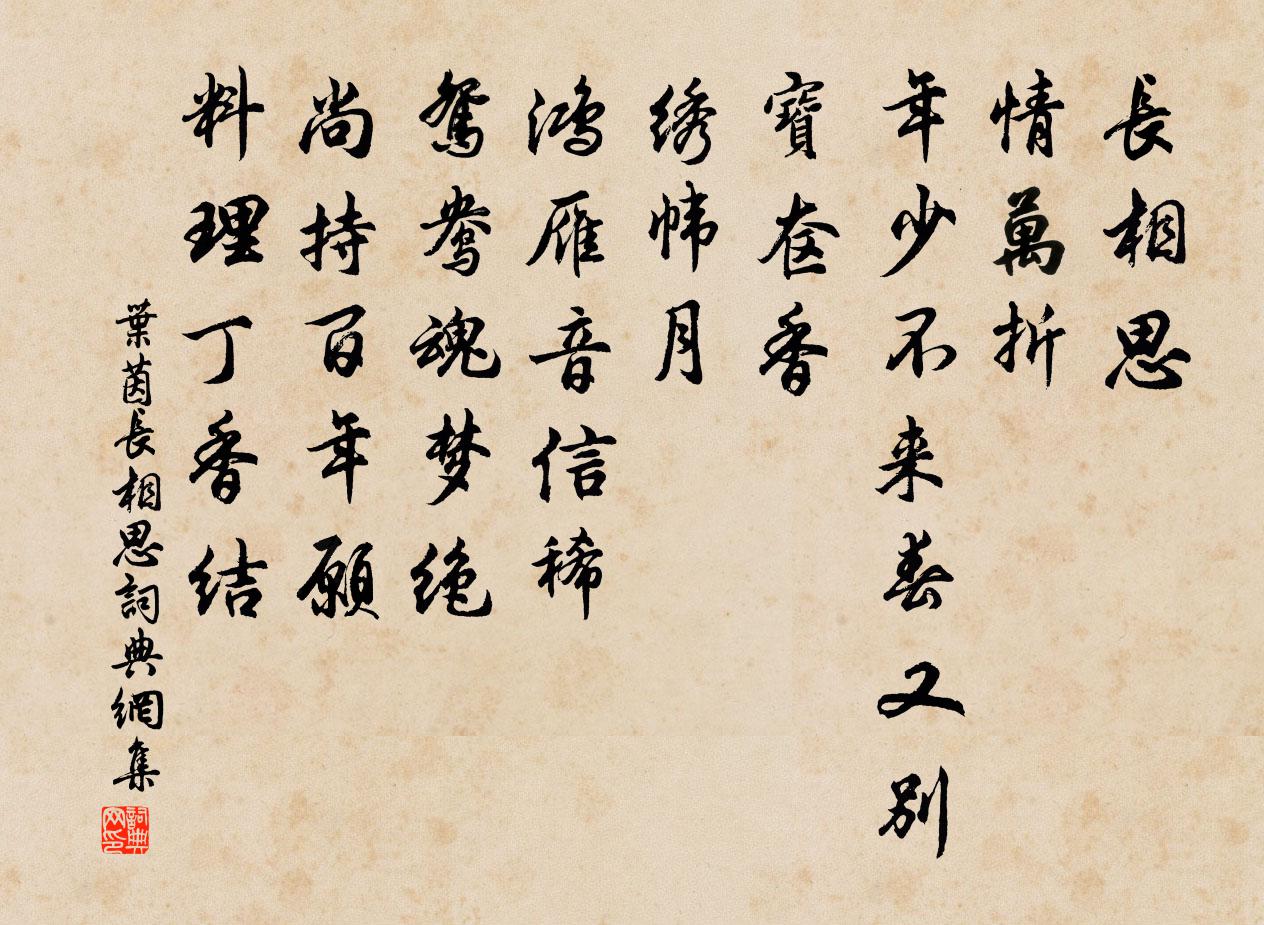 長相思
情萬折
年少不来春又別
寶奁香
绣帏月
鸿雁音信稀
鸳鸯魂梦绝
尚持百年願
料理丁香结
葉茵長相思詞典網集
詞典网印